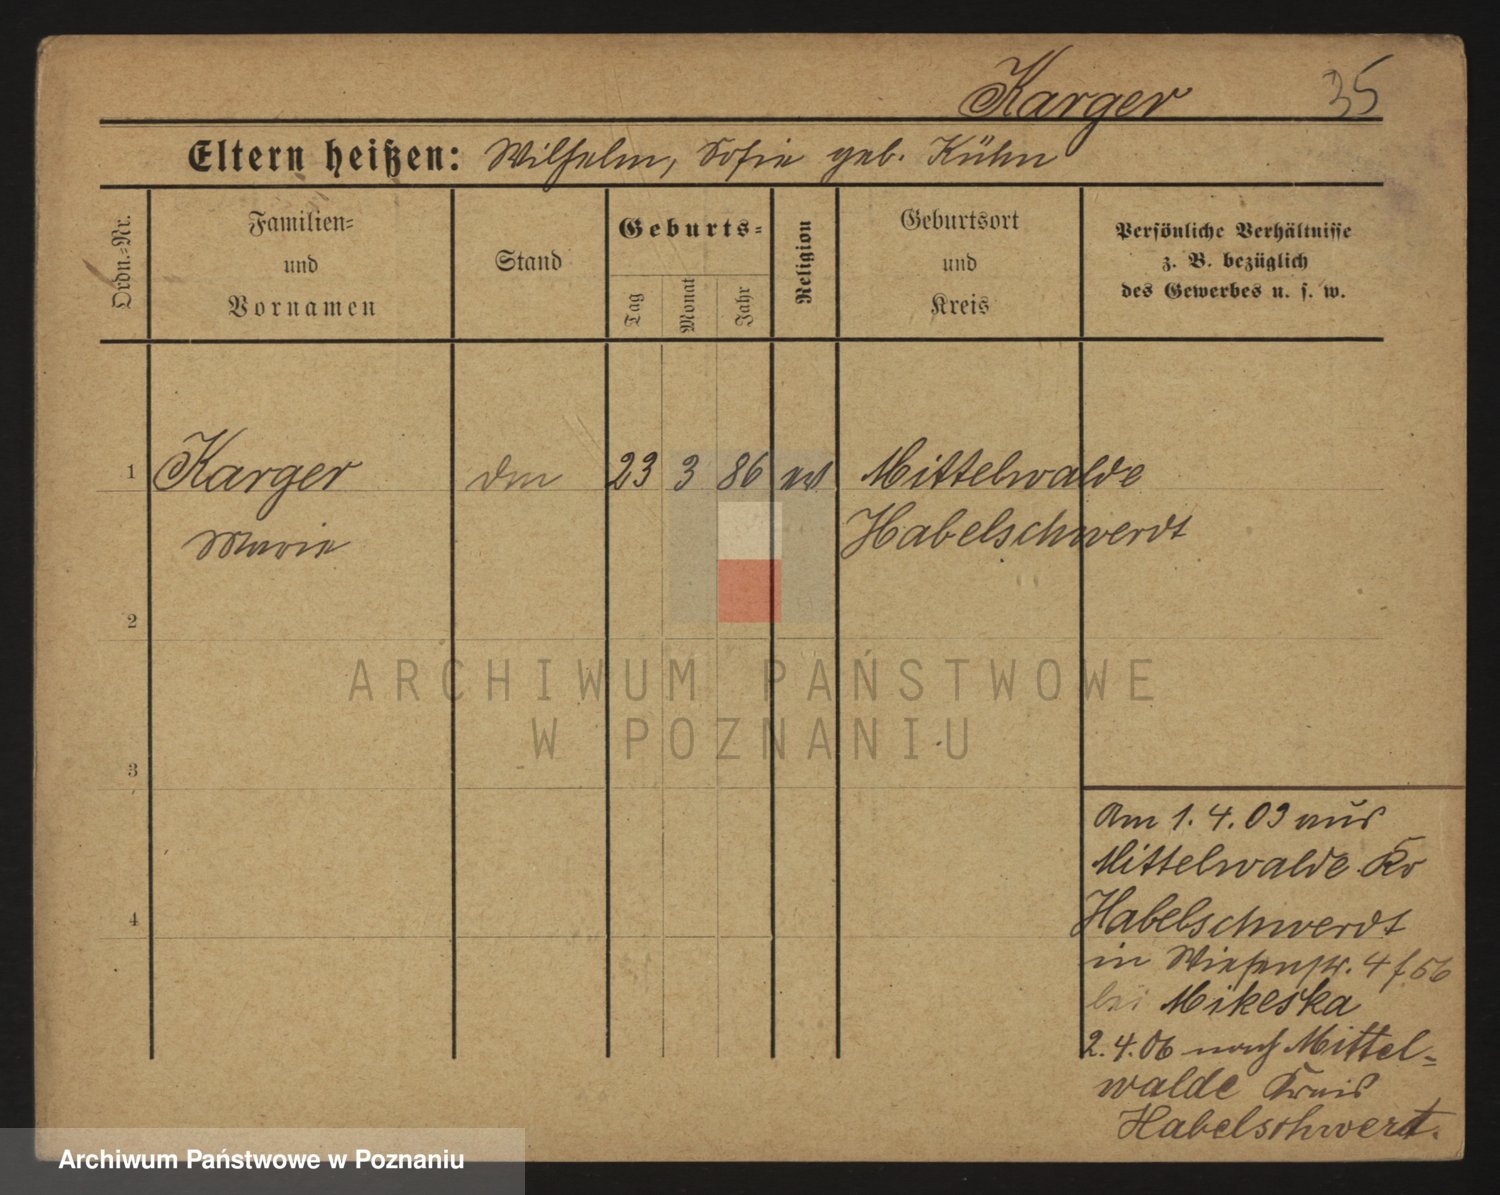 Karger 35
Eltern heißen: Wilhelm, Sofie geb. Kühn
Ordn.-Nr.
Familien-
und
Vornamen
Stand
Geburts-
Tag
Monat
Jahr
Religion
Geburtsort
und
Kreis
Persönliche Verhältnisse
z. B. bezüglich
des Gewerbes u. s. w.
1 Karger 23 3 86 Mittelwalde
Marie Habelschwerdt
2
3
4
Am 1. 4. 03 aus
Mittelwalde Kr
Habelschwerdt
in Wiesenstr. 4
bei Mikeska
2. 4. 06 nach Mittel=
walde Kreis
Habelschwert.
ARCHIWUM PAŃSTWOWE
W POZNANIU
Archiwum Państwowe w Poznaniu